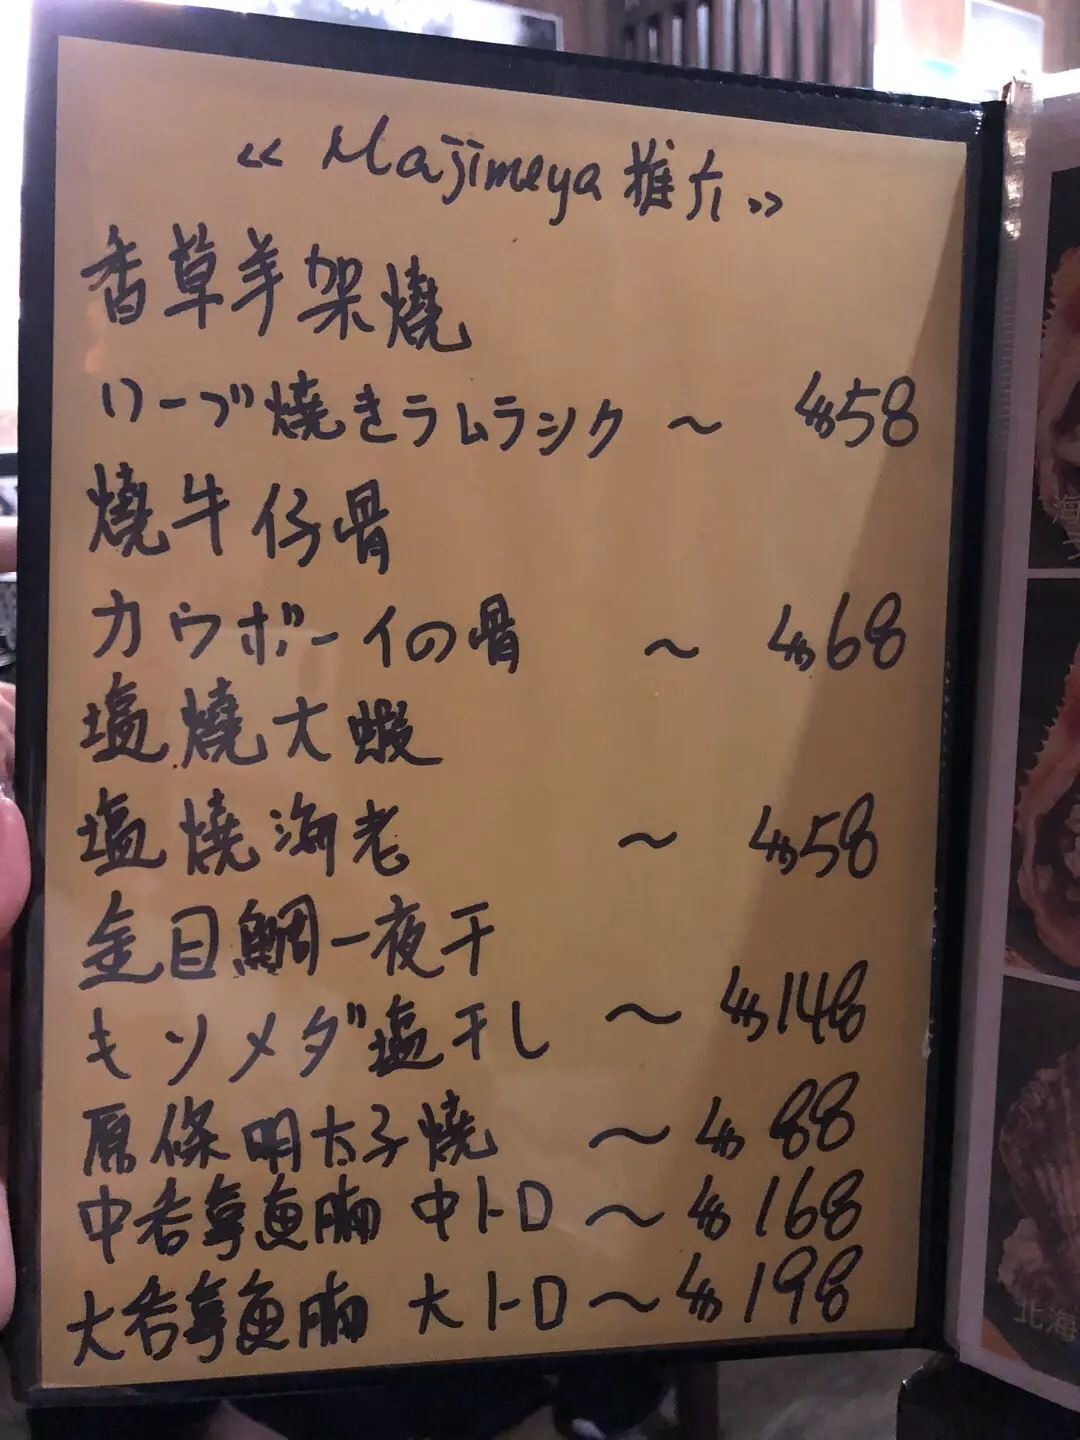 « Majimeya 推介 »
香草羊架燒
ハーブ燒きラムラシク ~ $58
燒牛仔骨
カウボーイの骨 ~ $68
塩燒大蝦
塩燒海老 ~ $58
金目鯛一夜干
キソメダ塩干し ~ $148
原條明太子燒 ~ $88
中吞拿魚腩 中トロ ~ $168
大吞拿魚腩 大トロ ~ $198
海
北海